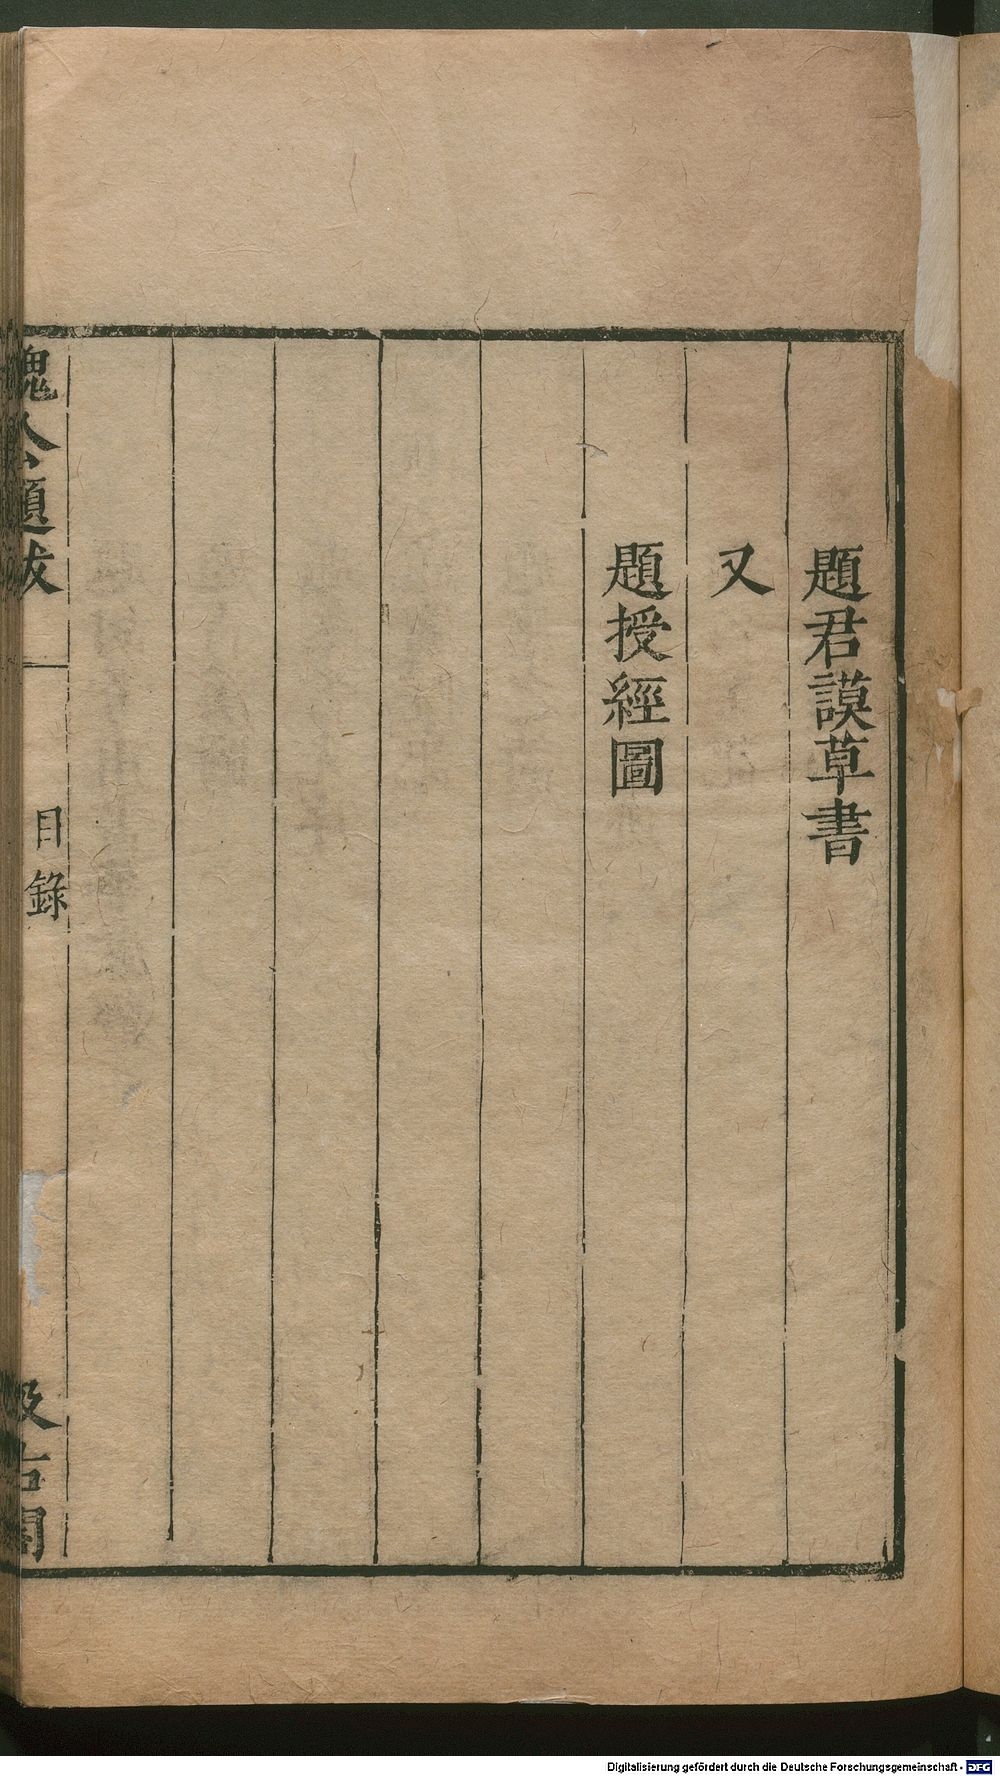 題君謨草書
又
題授經圖
魏公題跋
目錄
汲古閣
Digitalisierung gefördert durch die Deutsche Forschungsgemeinschaft - DFG